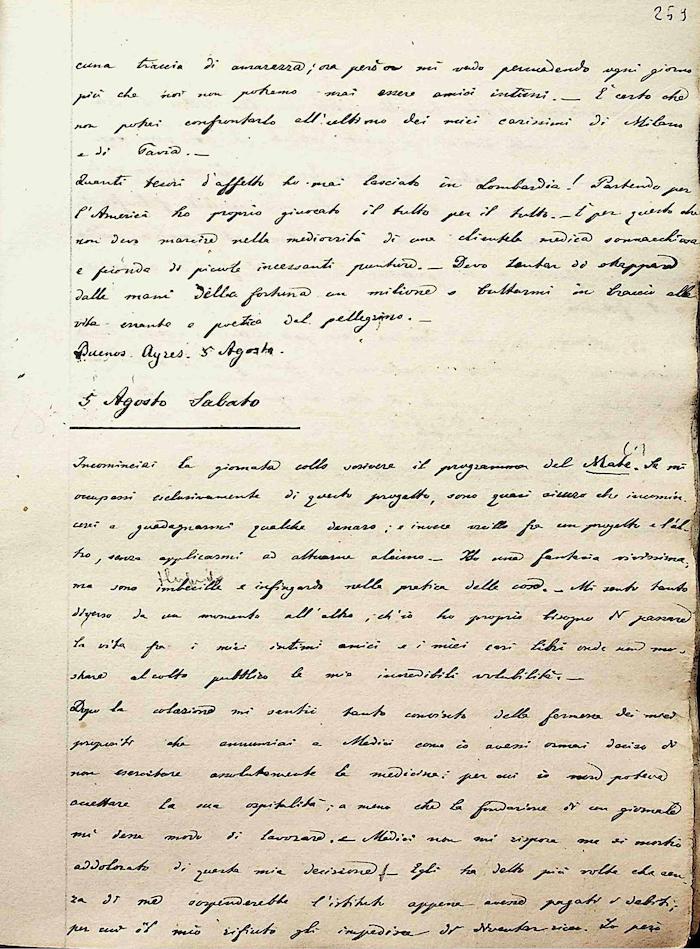 259
cuna traccia di amarezza; ora però mi vado persuadendo ogni giorno
più che noi non potremo mai essere amici intimi. — È certo che
non potrei confrontarlo all'ultimo dei miei carissimi di Milano
e di Pavia. —
Quanti tesori d'affetto ho mai lasciato in Lombardia! Partendo per
l'America ho proprio giuocato il tutto per il tutto. — È per questo che
non devo marcire nella mediocrità di una clientela medica sonnacchiosa
e feconda di piccole incessanti punture. — Devo tentar di strappare
dalle mani della fortuna un milione o buttarmi in braccio alla
vita errante e poetica del pellegrino. —
Buenos Ayres. 5 Agosto.
5 Agosto Sabato
Incominciai la giornata collo scrivere il programma del Mate. (1) Se mi
occupassi esclusivamente di questo progetto, sono quasi sicuro che incomin
cerei a guadagnarmi qualche denaro; e invece oscillo fra un progetto e l'al-
tro, senza applicarmi ad attuarne alcuno. — Ho una fantasia vivissima,
ma sono imbecille e infingardo nella pratica delle cose. — Mi sento tanto
diverso da un momento all'altro, ch'io ho proprio bisogno di passare
la vita fra i miei intimi amici e i miei cari libri onde non mo-
strare al colto pubblico le mie incredibili volubilità. —
Dopo la colazione mi sentii tanto convinto della fermezza dei miei
propositi che annunziai a Medici come io avessi ormai deciso di
non esercitare assolutamente la medicina; per cui io non poteva
accettare la sua ospitalità; a meno che la fondazione di un giornale
mi desse modo di lavorare. — Medici non mi rispose ma si mostrò
addolorato di questa mia decisione! — Egli ha detto più volte che sen-
za di me sospenderebbe l'istituto appena avesse pagati i debiti;
per cui il mio rifiuto gli impedisce di diventar ricco. Io però